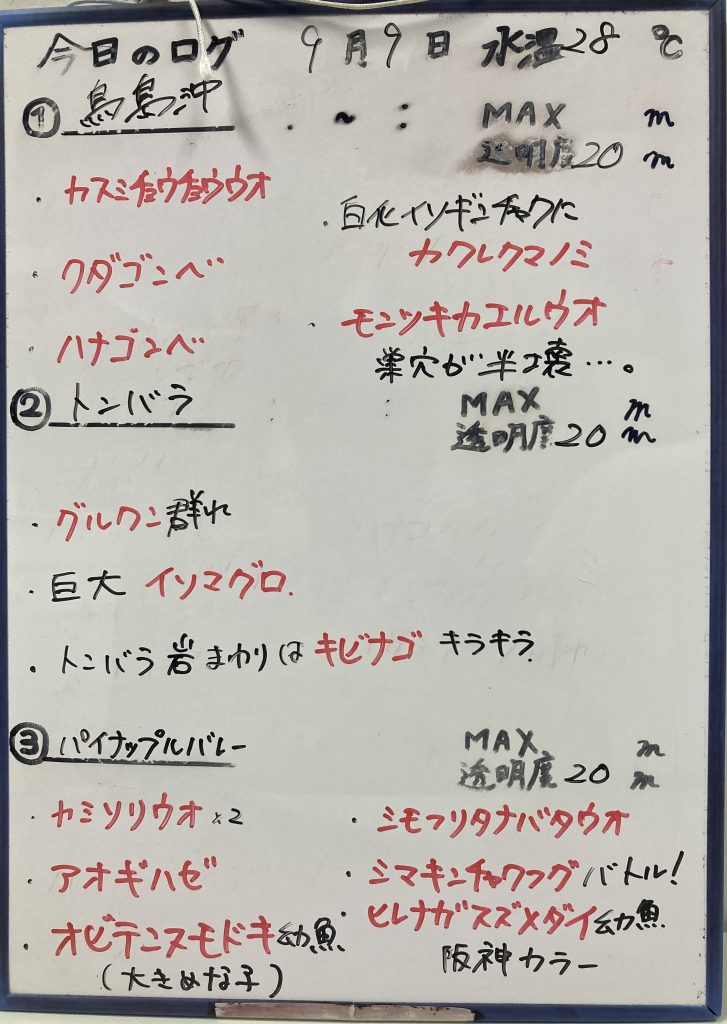 今日のログ 9月9日 水温28℃
① 鳥島沖 ・ ~ : MAX m
透明度20m
・カスミチョウチョウウオ
・クダゴンベ
・ハナゴンベ
・白化イソギンチャクに
カクレクマノミ
・モンツキカエルウオ
巣穴が半壊…。
② トンバラ : MAX m
透明度20m
・グルクン群れ
・巨大 イソマグロ.
・トンバラ岩まわりはキビナゴ キラキラ.
③ パイナップルバレー MAX m
透明度20m
・カミソリウオ×2
・アオギハゼ
・オビテンスモドキ幼魚
(大きめな子)
・シモフリタナバタウオ
・シマキンチャクフグバトル!
・ヒレナガスズメダイ幼魚
阪神カラー